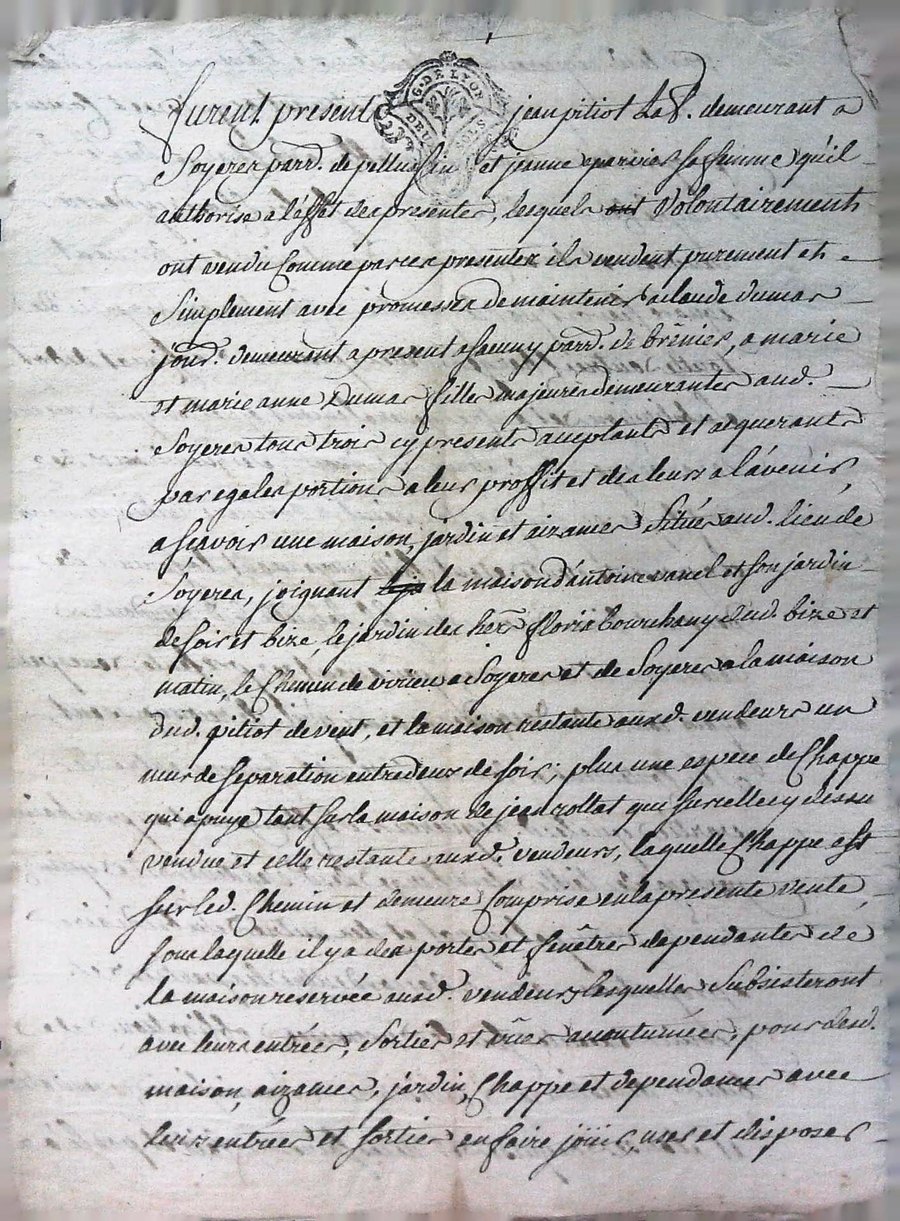 G. DE LYON
DEUX SOLS
furent presents jean pitiot Lab.r demeurant a
Soyeres parr. de pellussin et jeanne sa femme qu'il
authorise a l'effet des presentes, lesquels ont Volontairement
ont vendu Comme par ces presentes ils vendent purement et
Simplement avec promesses de maintenir a claude dumas
jourd. demeurant a present a parr. de a marie
et marie anne Dumas filles majeures demeurantes aud.
Soyeres tous trois cy presents acceptants et acquerants
par egales portions a leur proffit et des leurs a l'avenir
a scavoir une maison, jardin et aizances Située aud. lieu de
Soyeres, joignant la maison d'antoine et son jardin
de soir et bize, le jardin des her.s floris bourchany dud. bize et
matin, le Chemin de virieu a Soyeres et de Soyeres a la maison
dud. pitiot de vent, et la maison restante auxd. vendeurs un
mur de separation entre deux de soir; plus une espece de Chappe
qui apuye tant sur la maison de jean rollat que sur celle cy dessu
vendue et celle restante auxd. vendeurs, laquelle Chappe est
sur led. Chemin et demeure Comprise en la presente vente
sous laquelle il y a des portes et fenêtres dependantes de
la maison reservée auxd. vendeurs lesquelles Subsisteront
avec leurs entrées, Sorties et vües accoutumées, pour desd.
maison, aizances, jardin, Chappe et dependances avec
leurs entrées et sorties en faire joüir, user et disposer